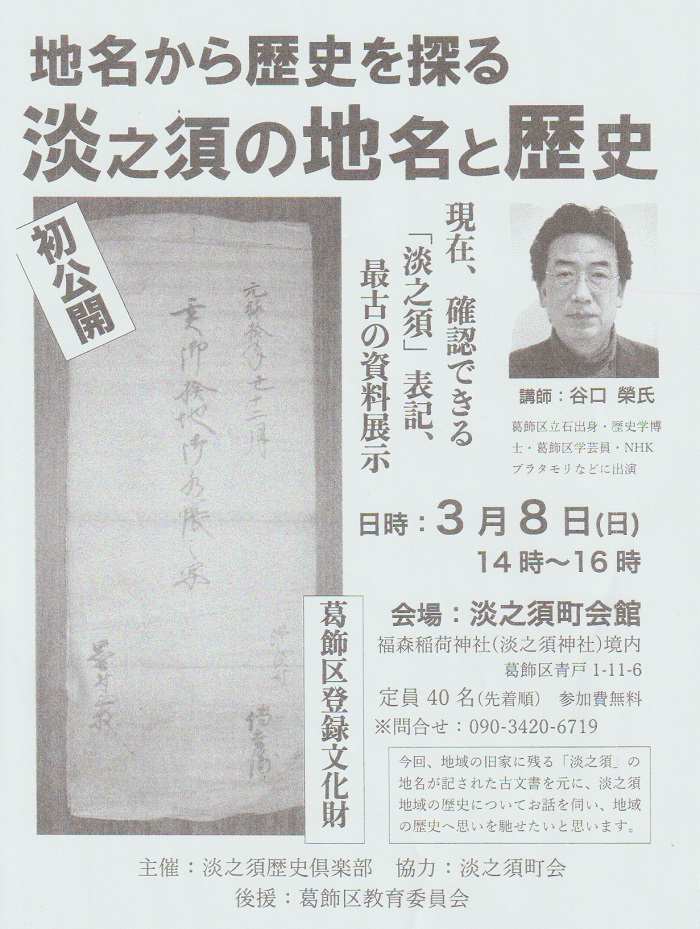 地名から歴史を探る
淡之須の地名と歴史
初公開
現在、確認できる
「淡之須」表記、
最古の資料展示
講師：谷口 榮氏
葛飾区立石出身・歴史学博
士・葛飾区学芸員・NHK
ブラタモリなどに出演
日時：3月8日(日)
14時～16時
会場：淡之須町会館
福森稲荷神社(淡之須神社)境内
葛飾区青戸 1-11-6
定員 40 名(先着順)　参加費無料
※問合せ：090-3420-6719
葛飾区登録文化財
今回、地域の旧家に残る「淡之須」の
地名が記された古文書を元に、淡之須
地域の歴史についてお話を伺い、地域
の歴史へ思いを馳せたいと思います。
主催：淡之須歴史倶楽部　協力：淡之須町会
後援：葛飾区教育委員会